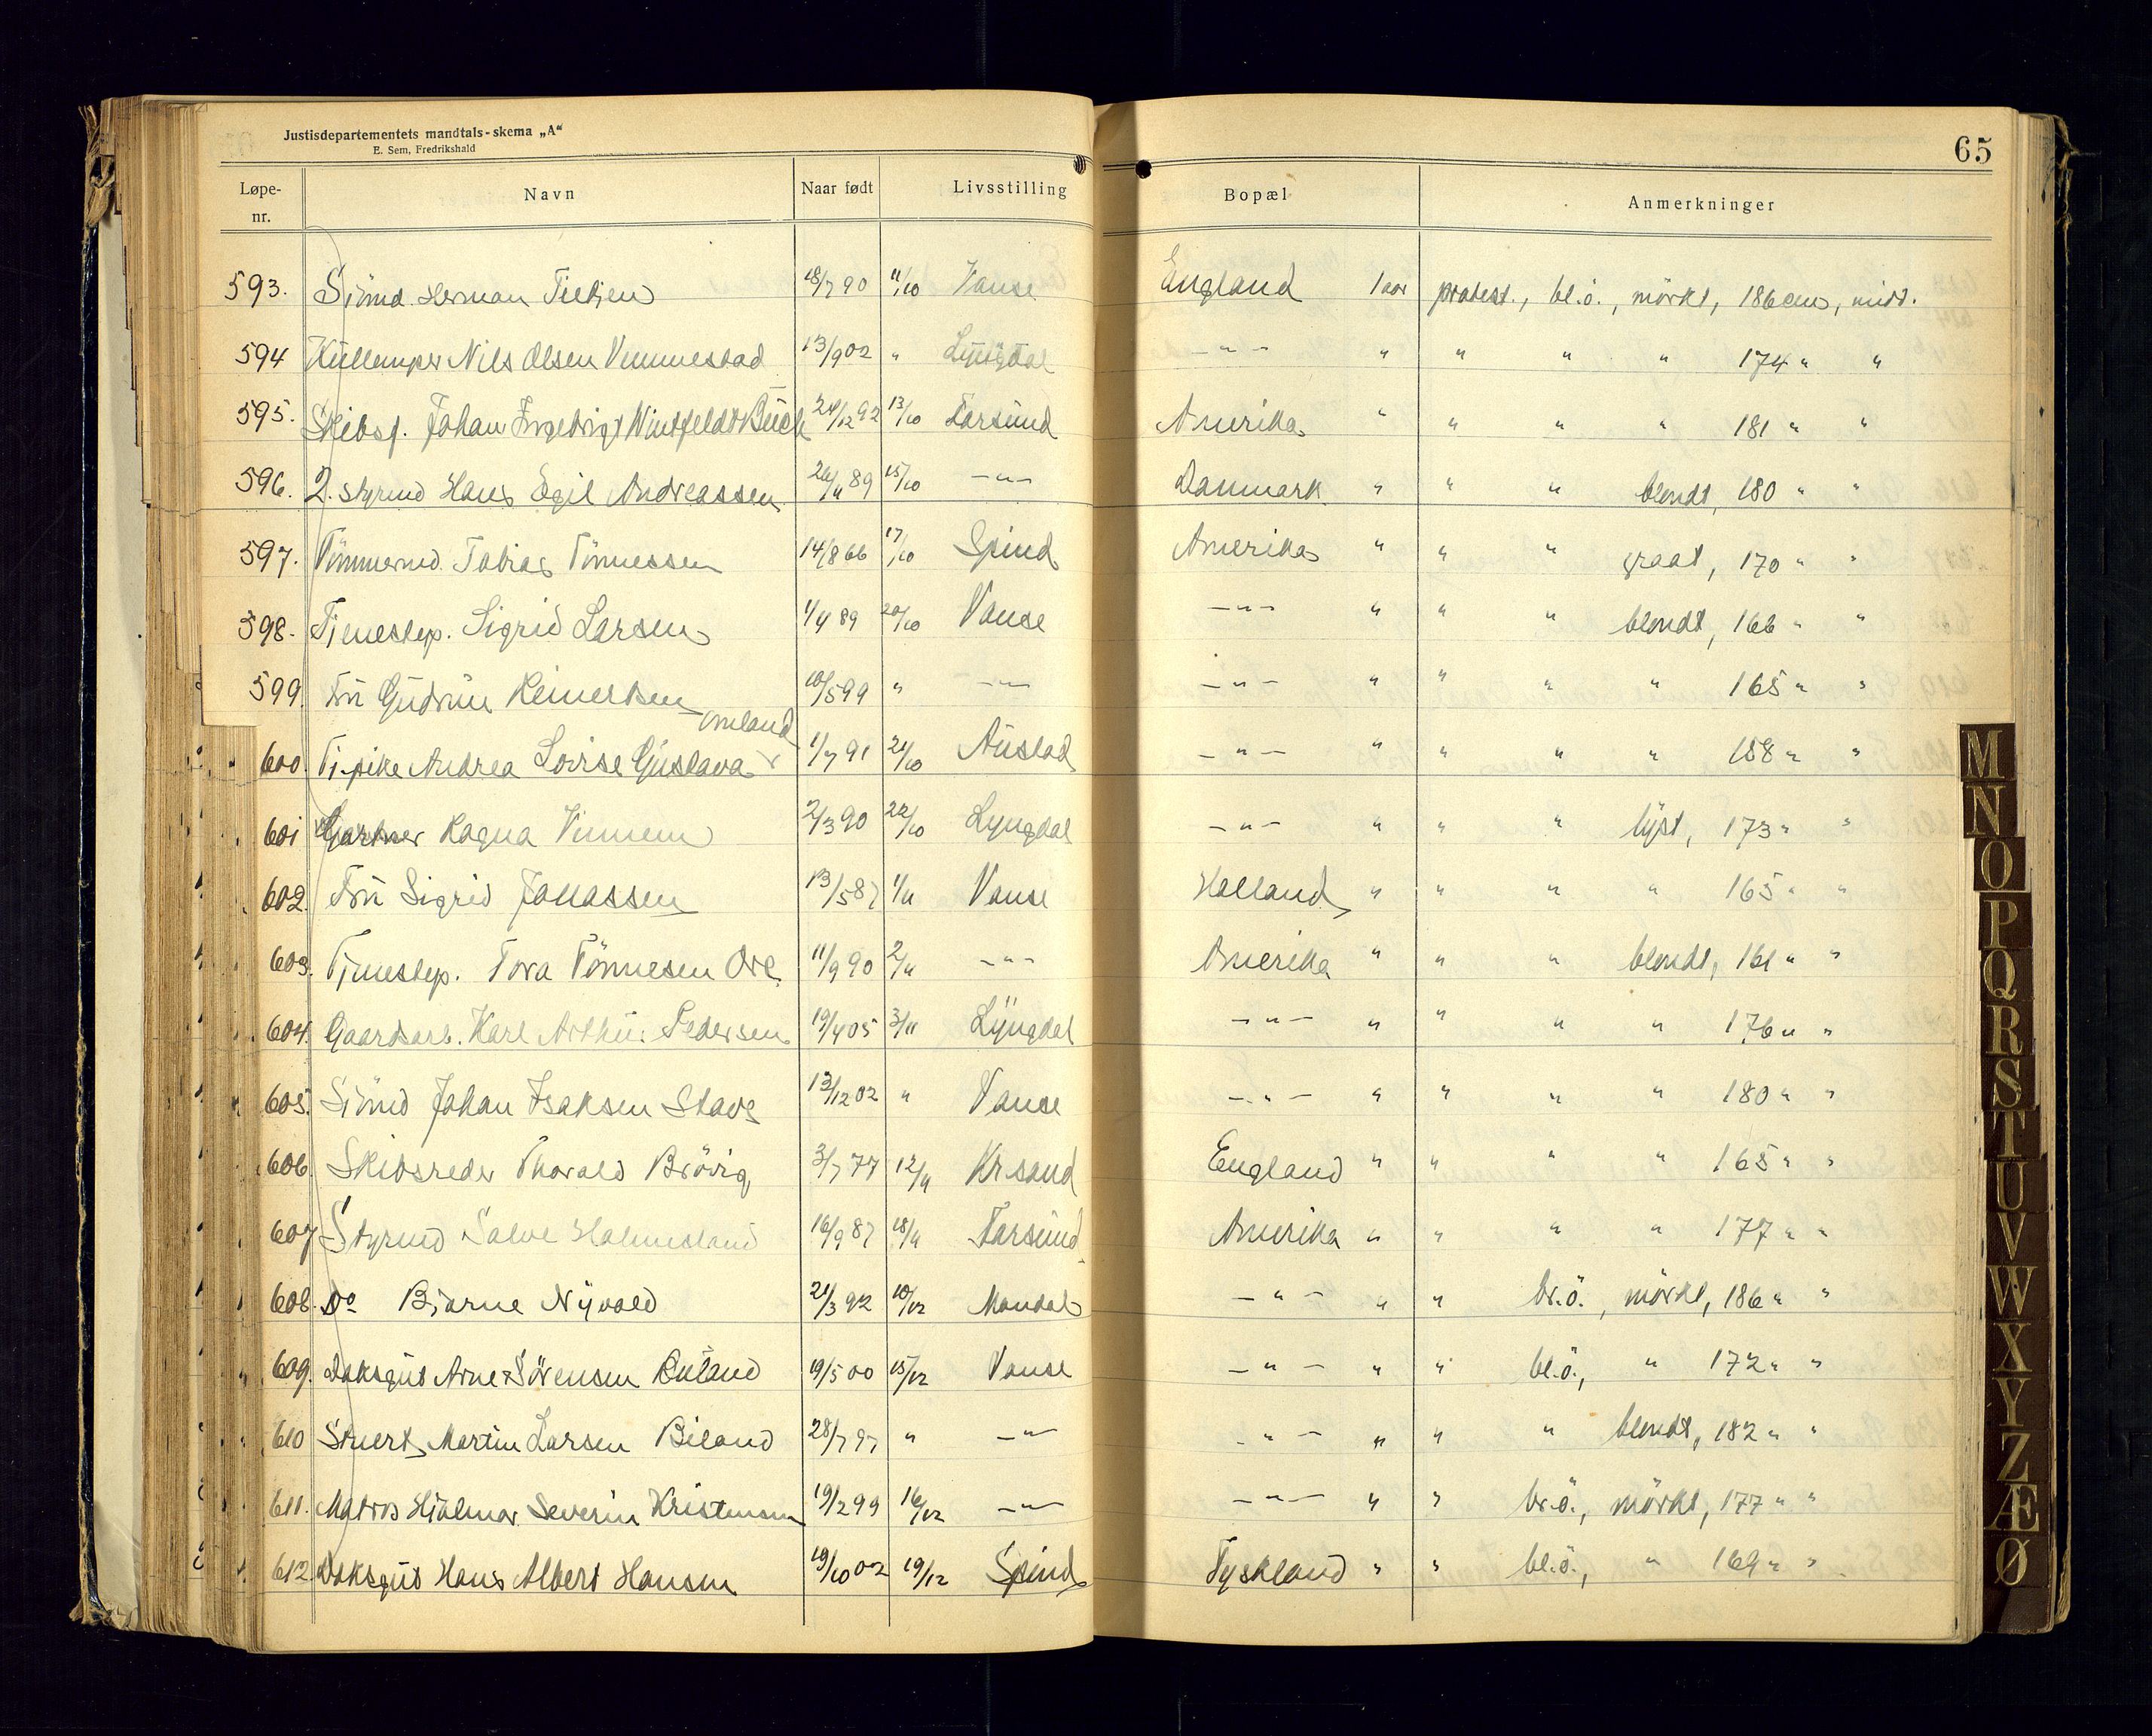 Justisdepartementets mandtals-skema „A“
E. Sem, Fredrikshald
65
Løpe-nr. Navn Naar født Livsstilling Bopæl Anmerkninger
593. Sjömd. Herman Tietjen 18/7 90 11/10 Vanse England 1 aar protest., bl.ö., mörkt, 186 cm, midd.
594 Nils Olsen Vemmestad 13/9 02 " Lyngdal —"— " " " " 174 " "
595. Skibsf. Johan Ingebrigt Wintfeldt Buch 24/12 92 13/10 Farsund Amerika " " " " 181 " "
596. 2. styrmd Hans Egil Andreassen 15/10 —"— Danmark " " " blondt, 180 " "
597. Tömmermd. Tobias Tönnessen 14/8 66 17/10 Spind Amerika " " " graat, 170 " "
598. Tjenestep. Sigrid Larsen 1/4 89 20/10 Vanse —"— " " " blondt, 166 " "
599. Frü Güdrün Reinertsen 10/5 99 " —"— —"— " " " " 165 " "
Omland
600. Tj.pike Andrea Lovise Güstava 1/7 91 21/10 Aüstad —"— " " " " 158 " "
601 Gartner Ragna Vinnem 2/3 90 22/10 Lyngdal —"— " " " lyst, 173 " "
602. Frü Sigrid Jonassen 13/5 87 1/11 Vanse Holland " " " " 165 " "
603. Tjenestep. Tora Tönnesen Ore 11/9 90 2/11 —"— Amerika " " " blondt, 161 " "
604. Gaardsarb. Karl Arthür Pedersen 19/4 05 3/11 Lyngdal —"— " " " " 176 " "
605. Sjömd Johan Isaksen Stave 13/12 02 " Vanse —"— " " " " 180 " "
606. Skibsreder Thorvald Brövig 3/7 77 12/11 Krsand England " " " " 165 " "
607 Styrmd Salve Holmesland 16/9 87 18/11 Farsund Amerika " " " " 177 " "
608. Do Bjarne Nyvold 21/3 92 10/12 Mandal —"— " " br.ö., mörkt, 186 " "
609. Daksgüt Arne Sörensen 19/5 00 15/12 Vanse —"— " " bl.ö., " 172 " "
610 Stuert Martin Larsen Biland 28/7 97 " —"— —"— " " " blondt, 182 " "
611. Matros Hjalmar Severin Kristensen 19/2 99 16/12 —"— —"— " " br.ö., mörkt, 177 " "
612 Daksgüt Hans Albert Hansen 19/10 02 19/12 Spind Tyskland " " bl.ö., " 169 " "
M
N
O
P
Q
R
S
T
U
V
W
X
Y
Z
Æ
Ø